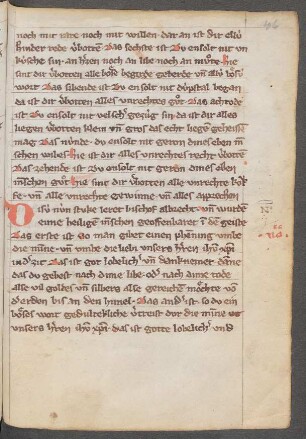 noch mit rate noch mit willen dar an ist dir ellú
súnder rede v̓botten Das sechste ist Du ensolt nit vn
kúsche sin · an h͛zen noch an libe noch an mv̊te · hie
sint dir v̓botten alle bôse begirde geberde vn̄ ellú bôsú
wort Das sibende ist Du ensolt nit dúpstal began
da ist dir v̓botten alles vnrechtes gv̊t Das achtode
ist Du ensolt nit velsch͛ gezúg sin da ist dir alles
liegen v̓botten klein vn̄ gros das echt liegē geheissē
mag Das núnde · du ensolt nit gern dines ebē m̄
schen wibes hie ist dir alles vnrechtes recht v̓botten
Das zehende ist Du ensolt nit gerē dines ebē
m̄schen gv̊t hie sint dir v̓botten alle vnrechte kôi
fe · vn̄ alle vnrechte gewinne · vn̄ alles apprechen
Disú nún stuke leret bischof albrecht · vn̄ wurdē
eine͛ heiligē m̄schen geoffenbaret ī dē geiste
Das erste ist So man gibet einen phēning vmbe
die mīne · vn̄ vmbe die liebi vnsers h͛ren ih̄u xp̄i
in d͛ zit Das ist got lobelich͛ vn̄ danknemer · dēne
das du gebest nach dime libe · od͛ nach dime tode
alse vil goldes vn̄ silbers alse gereichē môchte vō
d͛ erden bis an den himel · Das and͛ ist · so du ein
bôses wort gedulteklich v̓treist dur die mīne
vnsers h͛ren ih̄u xp̄i · das ist gotte lobelich͛ vnd